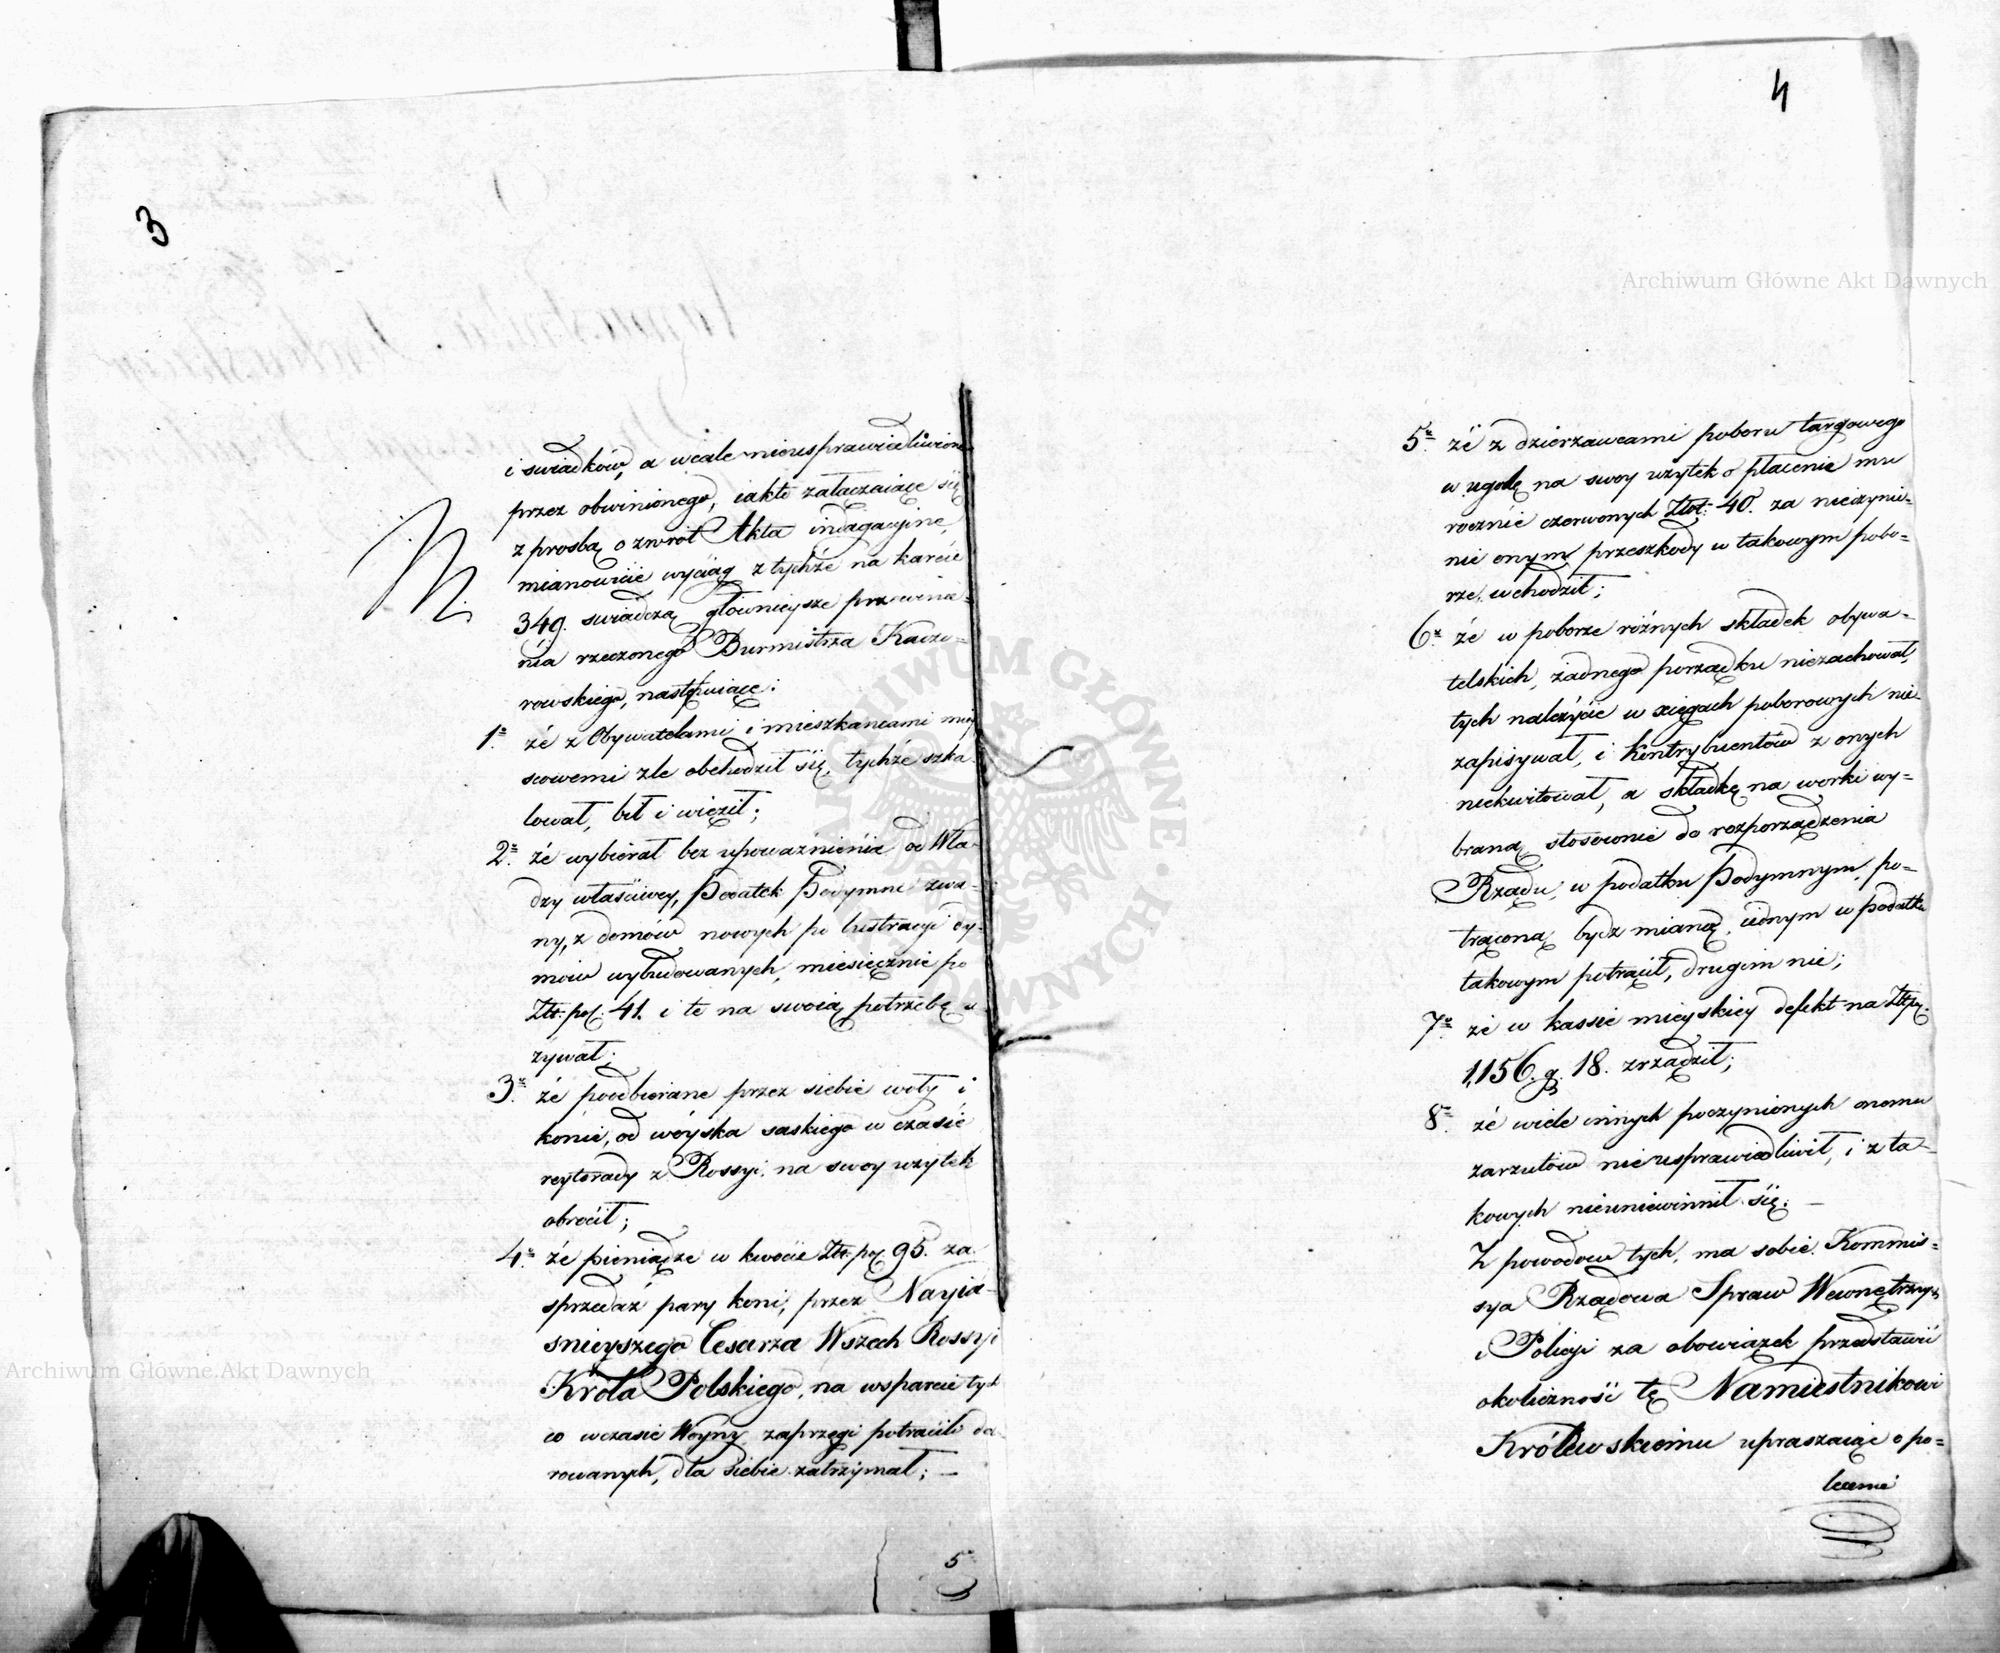 3
i swiadków, a wcale nieusprawiedliwione
przez obwinionego, iakto załączaiące się
z prosbą o zwrot Akta indagacyine,
mianowicie wyciąg z tychże na karcie
349. swiadczą głównieysze przewinie=
nia rzeczonego Burmistrza Kaczo=
rowskiego, następuiące:
1o. że z Obywatelami i mieszkancami miey
scowemi zle obchodził się, tychże szka
lował, bił i więził;
2o. że wybierał bez upoważnienia od Wła=
dzy właściwey, Podatek Podymne zwa=
ny, z domów nowych po lustracyi dy=
mów wybudowanych, miesięcznie po
Złt. pol. 41. i te na swoią potrzebę u=
żywał;
3o. że poodbierane przez siebie woły i
konie, od wóyska saskiego w czasie
reyterady z Rossyi, na swoy użytek
obrócił;
4o. że pieniądze w kwocie Złt. pol. 95. za
sprzedaż pary koni, przez Nayia=
snieyszego Cesarza Wszech Rossyi
Króla Polskiego, na wsparcie tych
co wczasie Woyny zaprzęgi potracili da=
rowanych, dla siebie zatrzymał; —
5
4
5o. że z dzierzawcami poboru targowego
w ugodę na swoy użytek o płacenie mu
rocznie czerwonych Złot: 40. za nieczynie=
nie onym przeszkody w takowym pobo=
rze, wchodził;
6o. że w poborze różnych składek obywa=
telskich, żadnego porządku niezachował,
tych należycie w xięgach poborowych nie=
zapisywał, i kontrybuentów z onych
niekwitował, a składkę na worki wy=
braną stosownie do rozporządzenia
Rządu, w podatku Podymnym, po=
trąconą bydz mianą, iednym w podatku
takowym potrącił, drugim nie;
7o. że w kassie mieyskiey defekt na Złt. pol.
1,156. g. 18. zrządził;
8o. że wiele innych poczynionych onemu
zarzutów nieusprawiedliwił, i z ta=
kowych nieuniewinnił się. —
Z powodow tych, ma sobie Kommis=
sya Rządowa Spraw Wewnętrznych
i Policyi za obowiązek przedstawić
okoliczność tę Namiestnikowi
Królewskiemu upraszaiąc o po=
lecenie